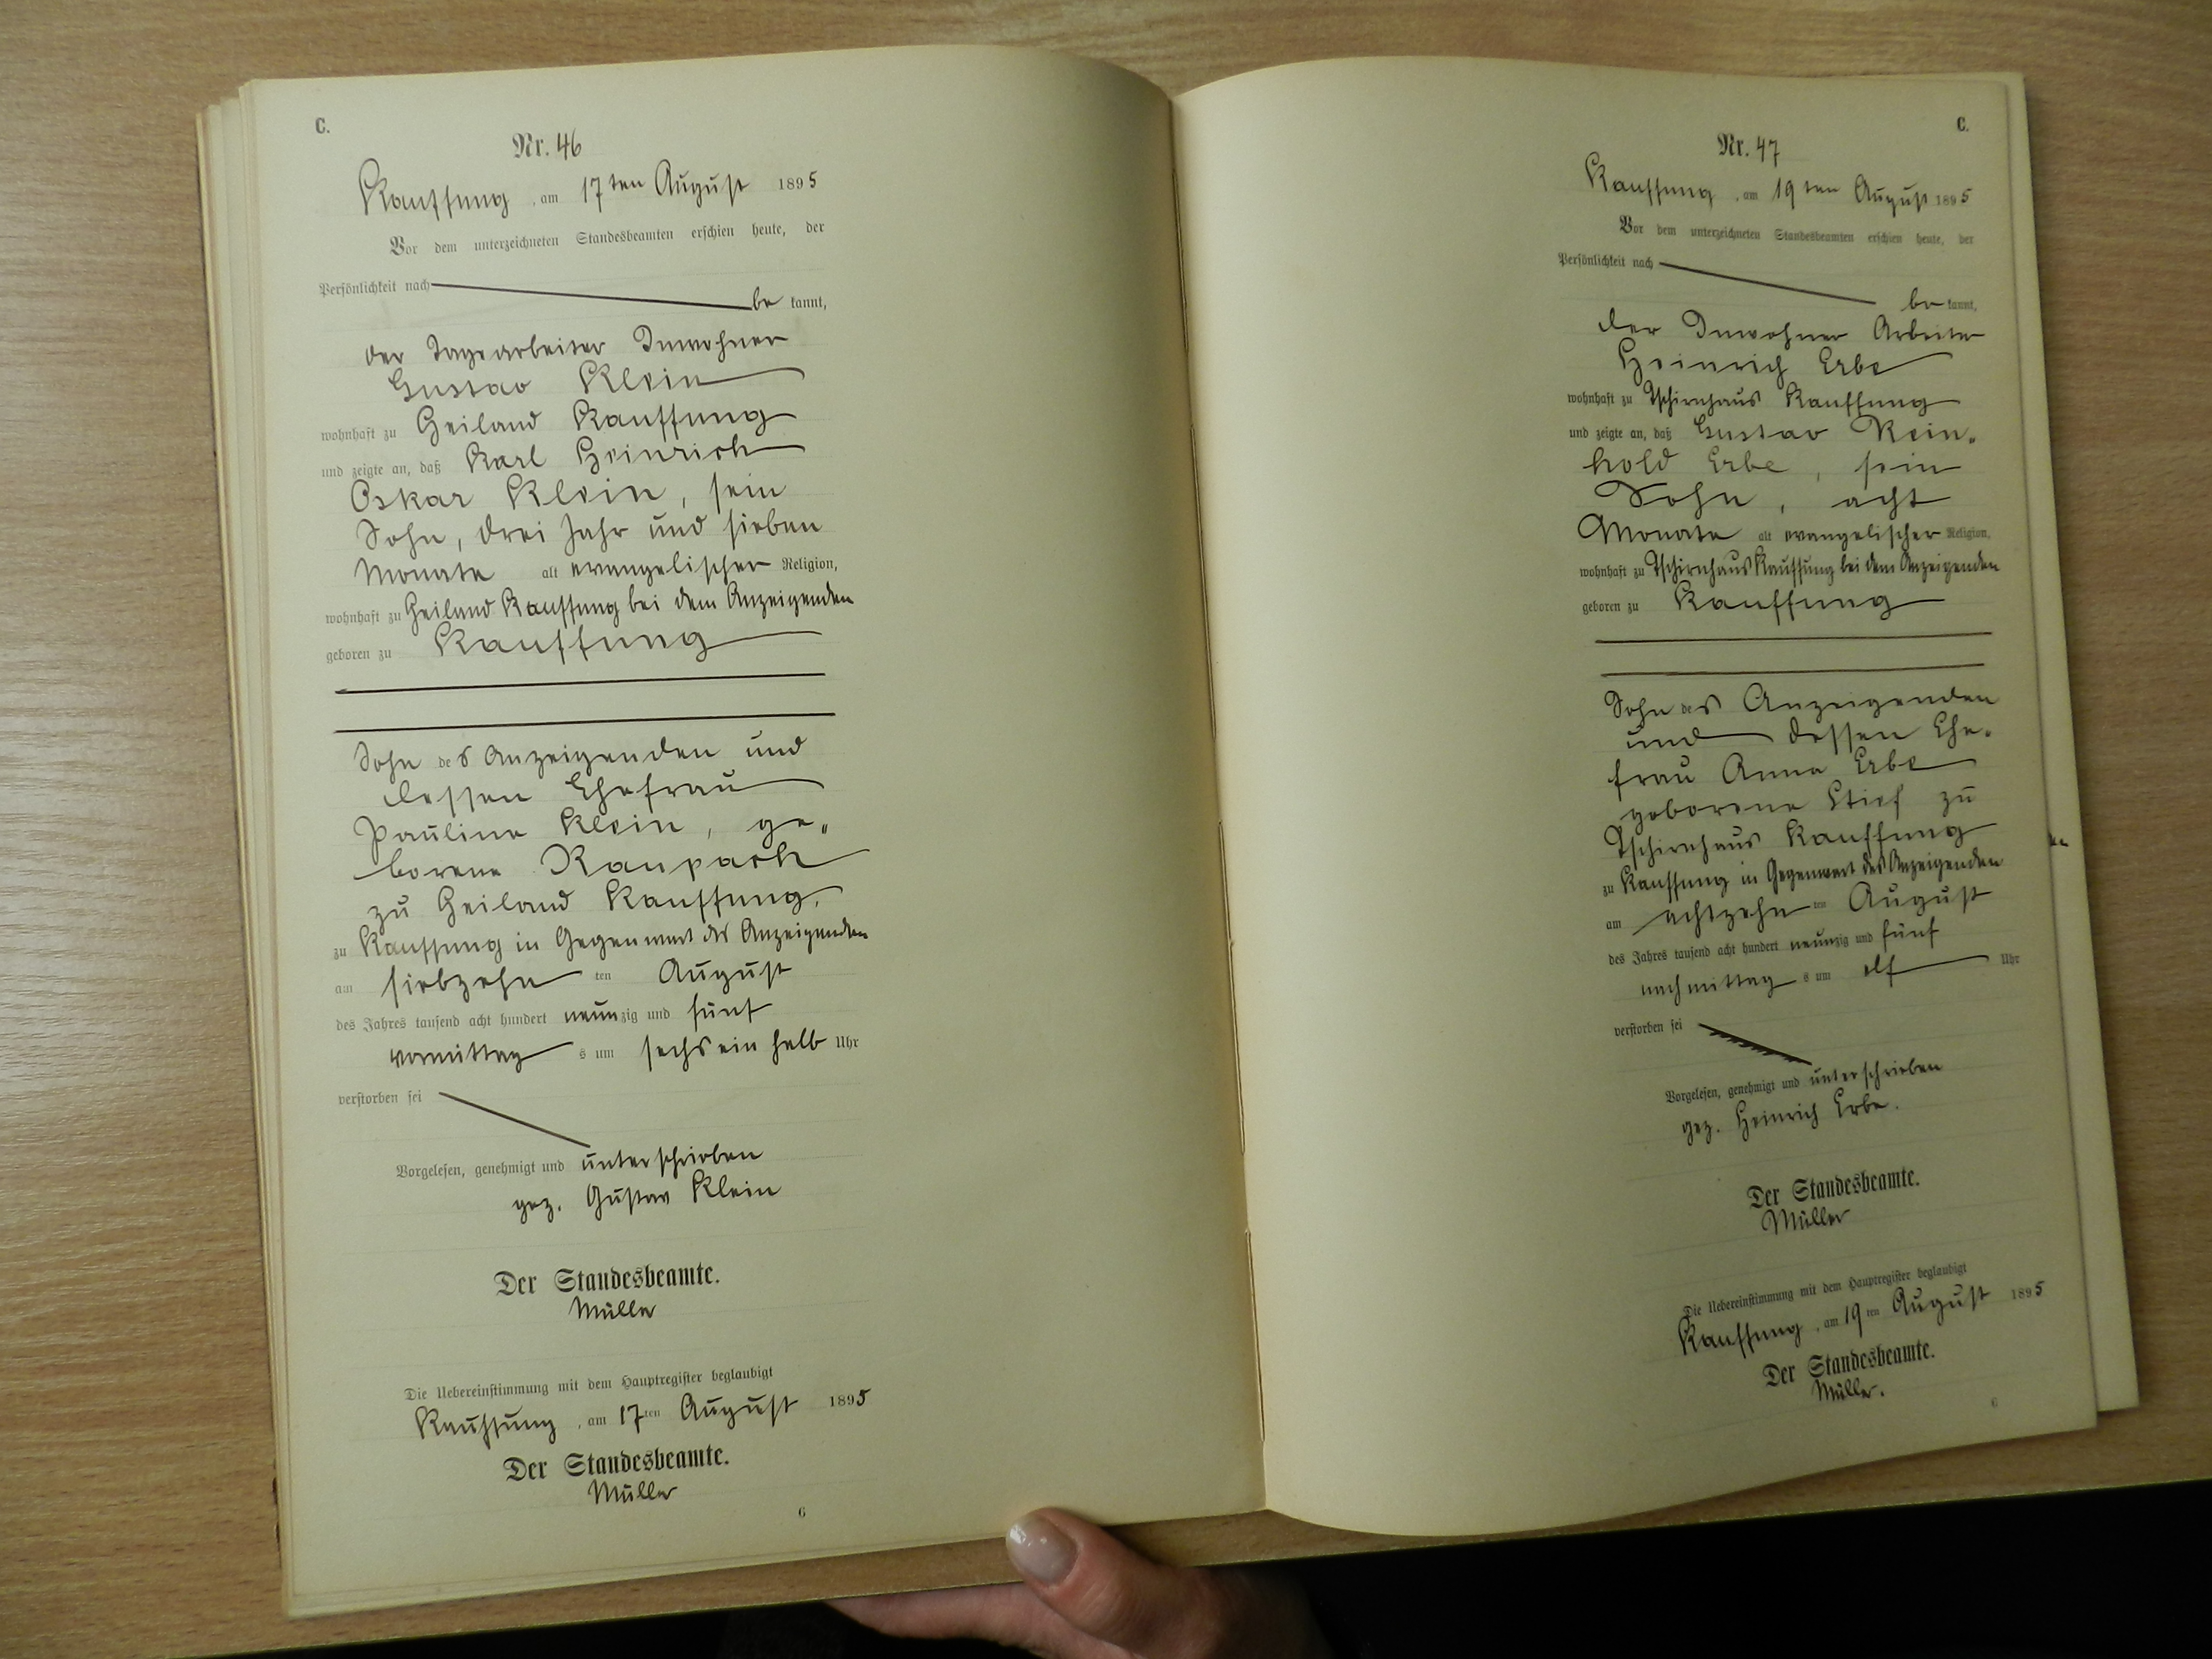 C.
Nr. 46
Kauffung, am 17ten August 1895
Vor dem unterzeichneten Standesbeamten erschien heute, der
Persönlichkeit nach be kannt,
der Tagearbeiter Inwohner
Gustav Klein
wohnhaft zu Geiland Kauffung
und zeigte an, daß Karl Heinrich
Oskar Klein, sein
Sohn, drei Jahr und sieben
Monate alt evangelischer Religion,
wohnhaft zu Geiland Kauffung bei dem Anzeigenden
geboren zu Kauffung
Sohn des Anzeigenden und
dessen Ehefrau
Pauline Klein, ge„
borene Raupach
zu Geiland Kauffung,
zu Kauffung in Gegenwart des Anzeigenden
am siebzehn ten August
des Jahres tausend acht hundert neunzig und fünf
vormittag s um sechs ein halb Uhr
verstorben sei
Vorgelesen, genehmigt und unterschrieben
gez. Gustav Klein
Der Standesbeamte.
Müller
Die Uebereinstimmung mit dem Hauptregister beglaubigt
Kauffung, am 17ten August 1895
Der Standesbeamte.
Müller
6
C.
Nr. 47
Kauffung, am 19ten August 1895
Vor dem unterzeichneten Standesbeamten erschien heute, der
Persönlichkeit nach be kannt,
der Inwohner Arbeiter
Heinrich Erbe
wohnhaft zu Tschirnhaus Kauffung
und zeigte an, daß Gustav Rein„
hold Erbe, sein
Sohn, acht
Monate alt evangelischer Religion,
wohnhaft zu Tschirnhaus Kauffung bei dem Anzeigenden
geboren zu Kauffung
Sohn des Anzeigenden
und dessen Ehe„
frau Anna Erbe
geborene Stief zu
Tschirnhaus Kauffung
zu Kauffung in Gegenwart des Anzeigenden
am achtzehn ten August
des Jahres tausend acht hundert neunzig und fünf
nachmittag s um elf Uhr
verstorben sei
Vorgelesen, genehmigt und unterschrieben
gez. Heinrich Erbe.
Der Standesbeamte.
Müller
Die Uebereinstimmung mit dem Hauptregister beglaubigt
Kauffung, am 19ten August 1895
Der Standesbeamte.
Müller.
6